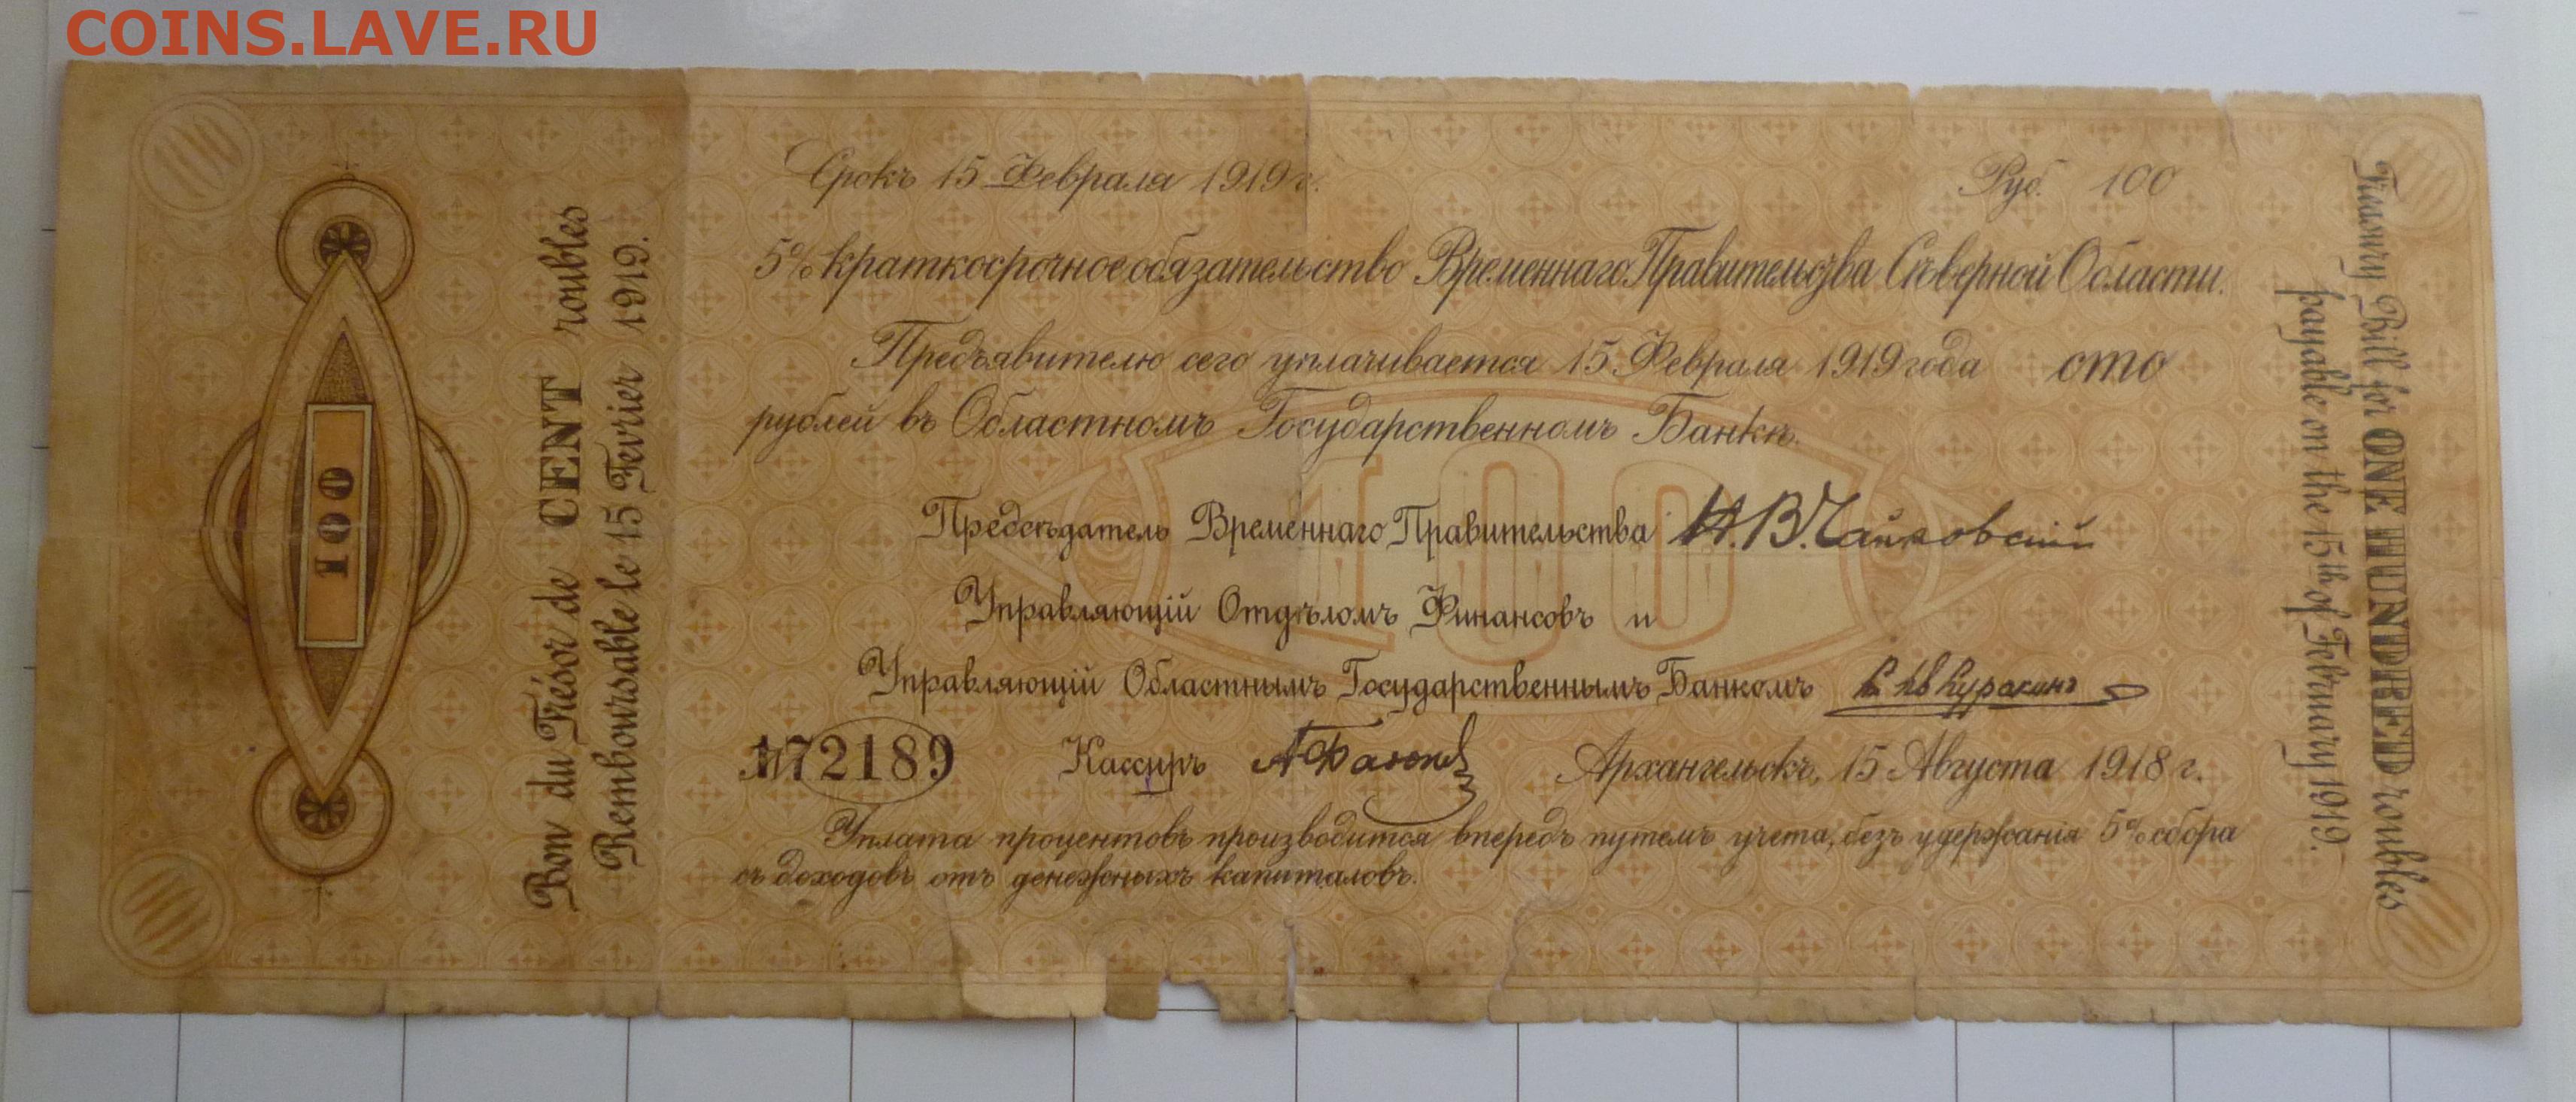 COINS.LAVE.RU
100
Bon du Trésor de CENT roubles
Remboursable le 15 Fevrier 1919.
Срокъ 15 Февраля 1919 г.
Руб. 100
5% краткосрочное обязательство Временнаго Правительства Сѣверной Области.
Предъявителю сего уплачивается 15 Февраля 1919 года сто
рублей въ Областномъ Государственномъ Банкѣ.
100
Предсѣдатель Временнаго Правительства Н.В.Чайковскій
Управляющій Отдѣломъ Финансовъ и
Управляющій Областнымъ Государственнымъ Банкомъ Куракинъ
№ 172189 Кассиръ Архангельскъ, 15 Августа 1918 г.
Уплата процентовъ производится впередъ путемъ учета, безъ удержанія 5% сбора
съ доходовъ отъ денежныхъ капиталовъ.
Tresoury Bill for ONE HUNDRED roubles
payable on the 15th of February 1919.